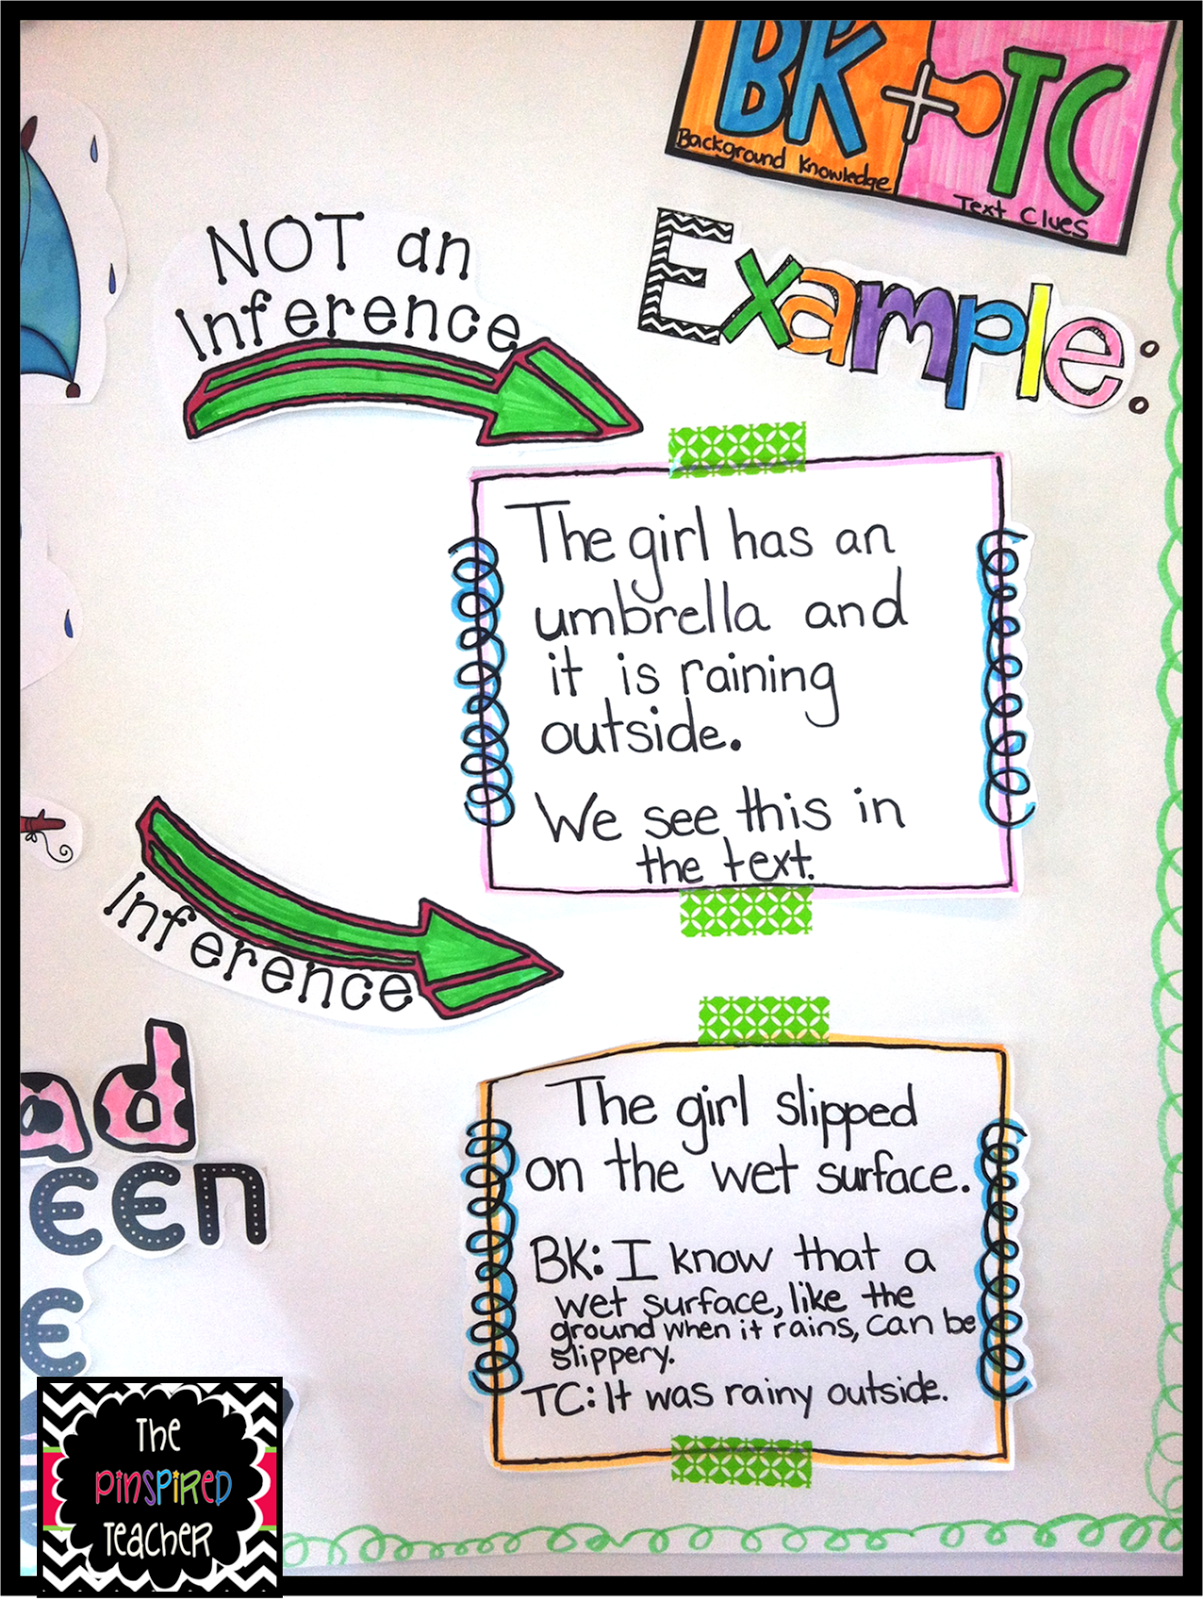 BK + TC
Background Knowledge
Text Clues
Example:
NOT an
Inference
The girl has an
umbrella and
it is raining
outside.
We see this in
the text.
Inference
The girl slipped
on the wet surface.
BK: I know that a
wet surface, like the
ground when it rains, can be
slippery.
TC: It was rainy outside.
ad
een
e
The
Pinspired
Teacher